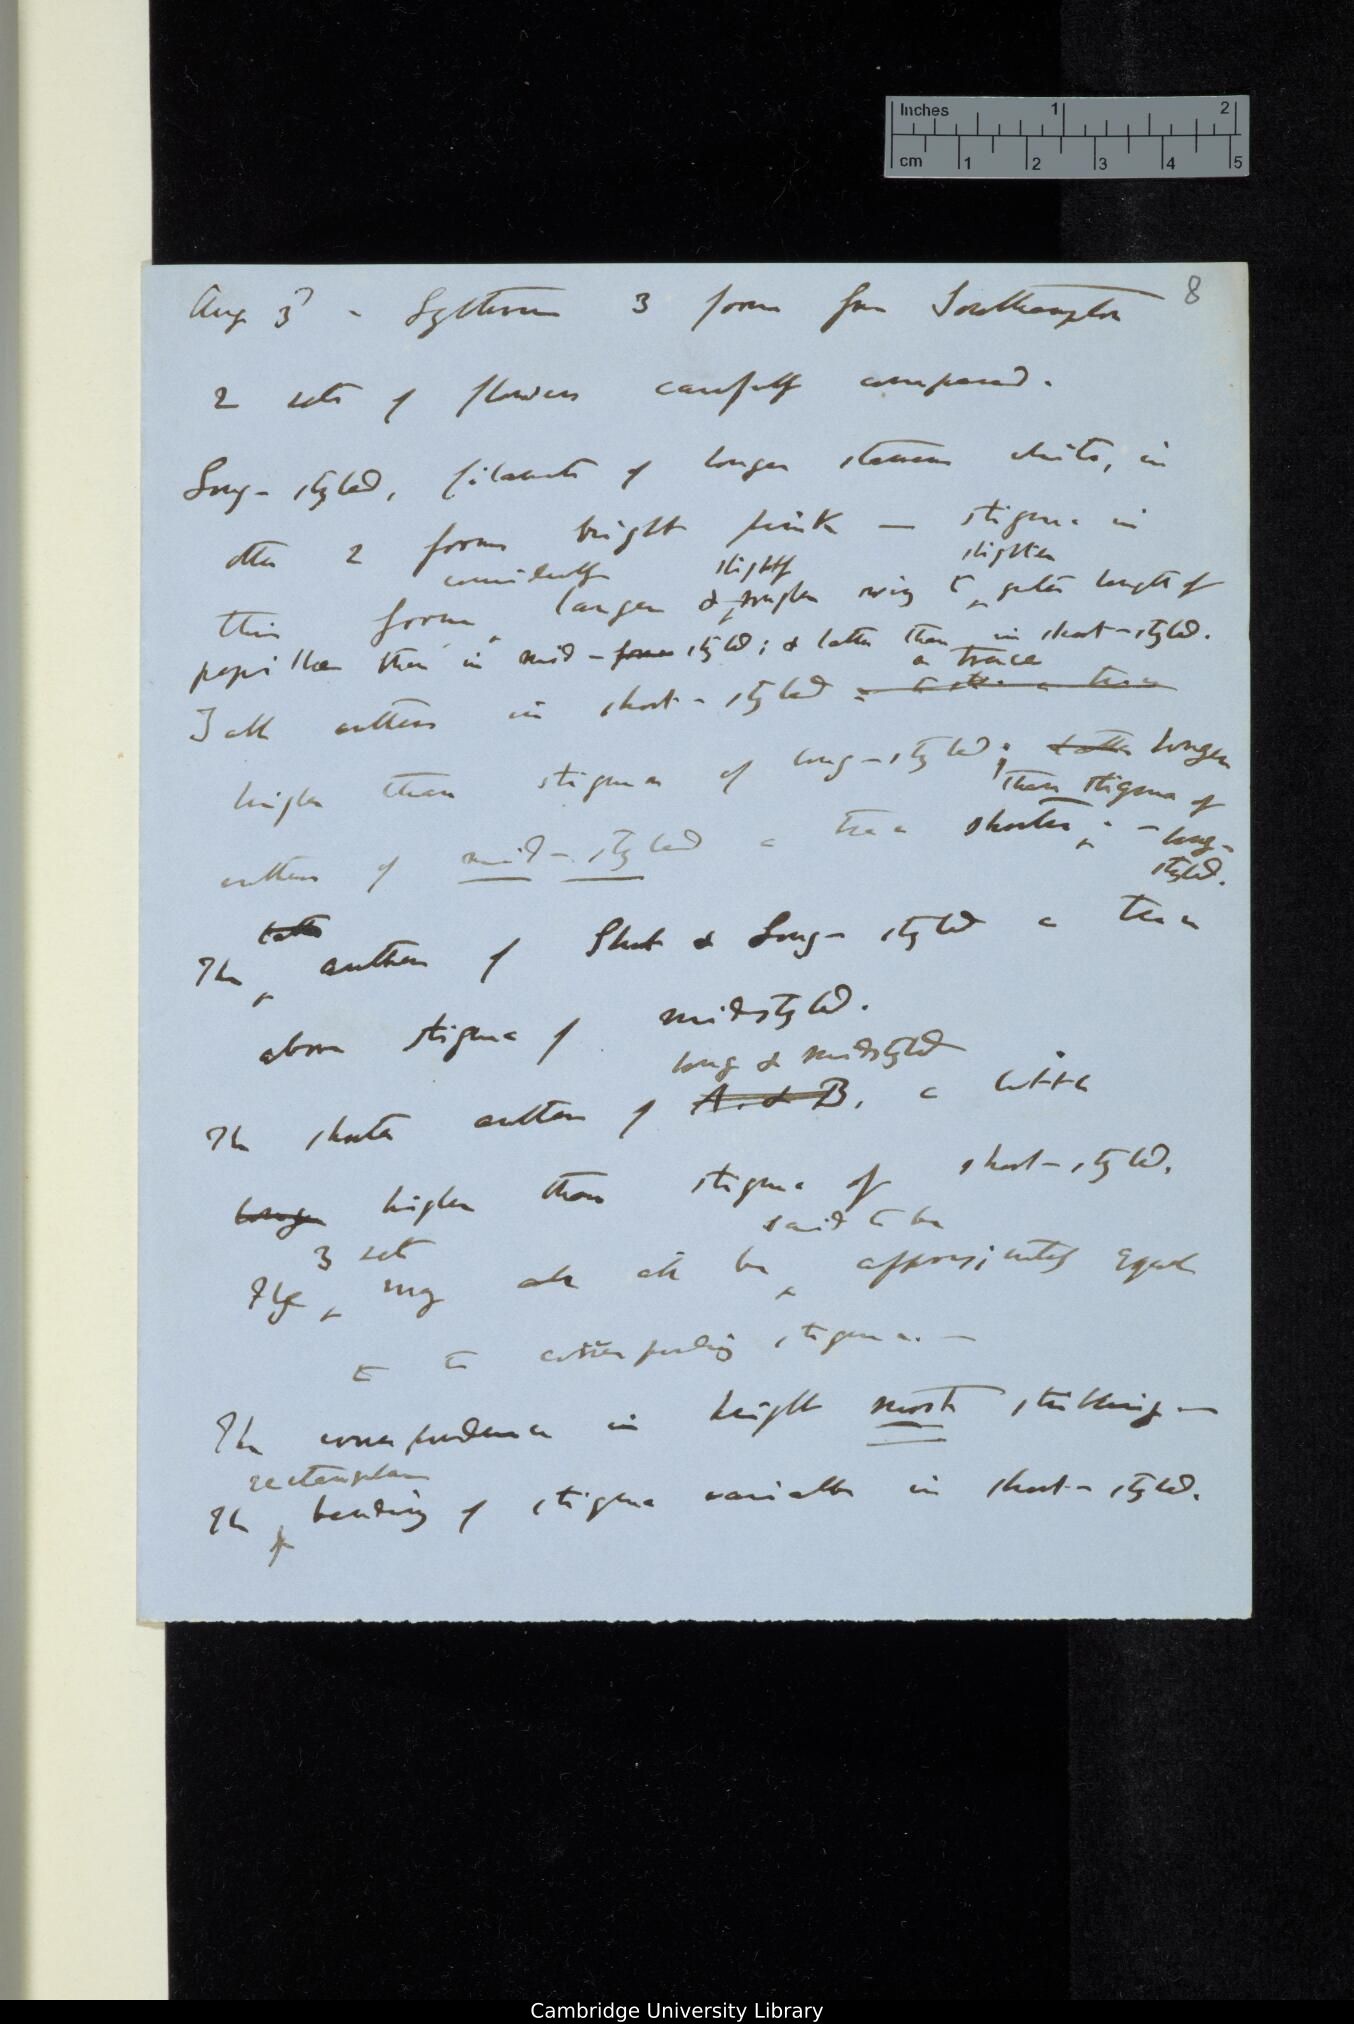 Inches 1 2
cm 1 2 3 4 5
8
Aug 3d - Lythrum 3 forms from Southampton
2 sets of flowers carefully compared.
Long-styled, filaments of longer stamens white, in
other 2 forms bright pink — stigma in
considerably slightly slighter
this form, larger & rougher owing to greater length of
papillae than in mid-form styled; & latter than in short-styled.
a trace
Tall anthers in short-styled
higher than stigma of long-styled; & other longer
than stigma of
anthers of mid-styled a trace shorter, - long-
styled.
The anthers of Short & Long-styled a trace
above stigma of midstyled.
long & midstyled
The shorter anthers of A. & B. a little
longer higher than stigma of short-styled.
3 sets said to be
may all be approximately equal
to corresponding stigma. —
The correspondence in height most striking —
rectangular
The bending of stigma variable in short-styled.
Cambridge University Library